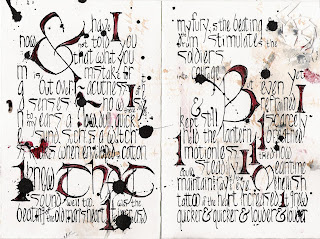 & have I
now not told you
that what you
mistake for
is but over acuteness of
senses now I
to my ears a low dull quick
sound such as a watch
makes when in cotton
I know THAT
sound well too It was the
beating of the old man's heart It increased
my fury as the beating
of a drum stimulates the
soldier
into courage But even yet
I refrained
& kept still I scarcely
I held the lantern breathed
motionless I
steadily I Meantime
maintain the hellish
tattoo of the heart increased It grew
quicker & quicker & louder & louder